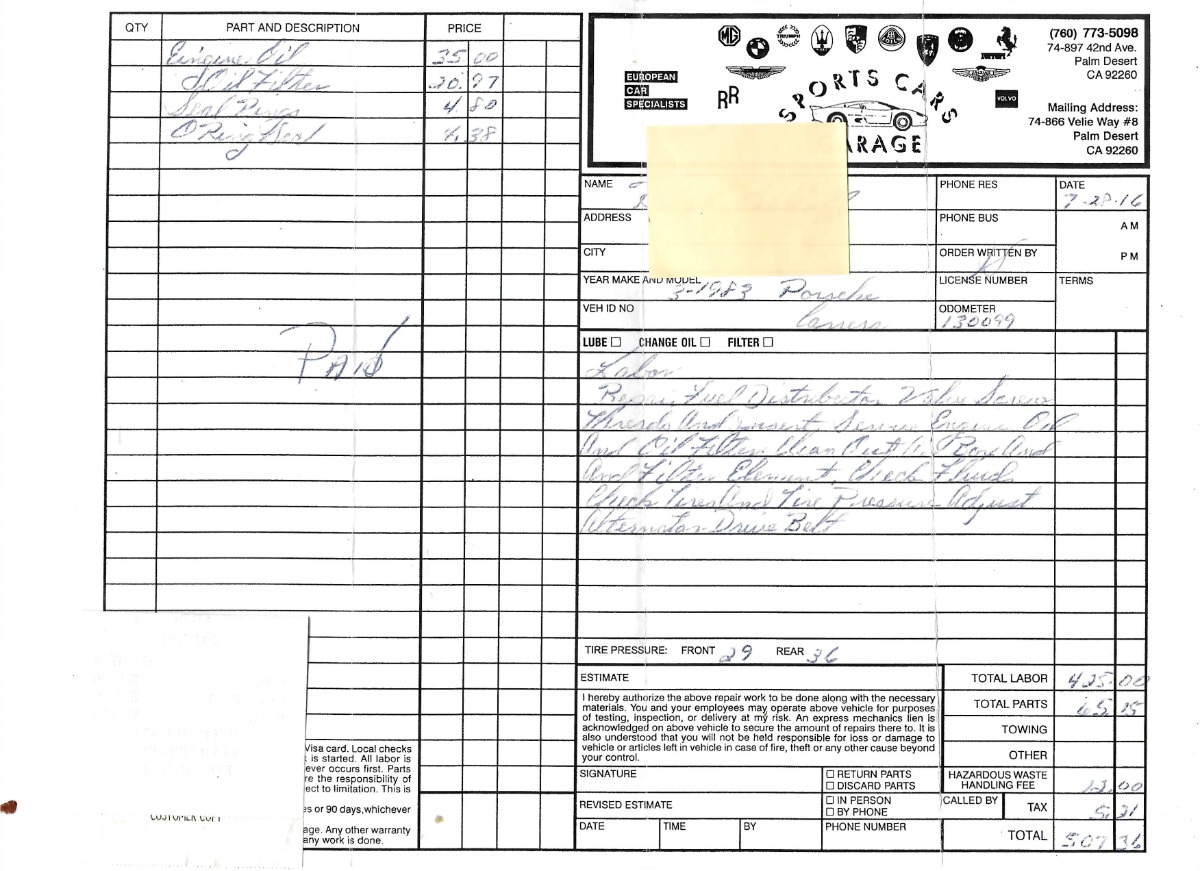 QTY PART AND DESCRIPTION PRICE
Eingine Oil 35 00
Oil Filter 20.97
Seal Rings 4.80
O Ring Seal 4.38
PAID
EUROPEAN
CAR
SPECIALISTS
MG
TRIUMPH
RR
VOLVO
SPORTS CARS
ARAGE
(760) 773-5098
74-897 42nd Ave.
Palm Desert
CA 92260
Mailing Address:
74-866 Velie Way #8
Palm Desert
CA 92260
NAME PHONE RES DATE
7-28-16
ADDRESS PHONE BUS AM
CITY ORDER WRITTEN BY PM
YEAR MAKE AND MODEL LICENSE NUMBER TERMS
3-1983 Porsche
VEH ID NO ODOMETER
Carrera 130099
LUBE CHANGE OIL FILTER
Labor
Repair Fuel Distributor Valve Screw
Threads And insert Service Engine Oil
And Oil Filter Clean Out Box And
And Filter Element, Check Fluids
Check Tires And Tire Pressure Adjust
Alternator Drive Belt
TIRE PRESSURE: FRONT 29 REAR 36
ESTIMATE
I hereby authorize the above repair work to be done along with the necessary
materials. You and your employees may operate above vehicle for purposes
of testing, inspection, or delivery at my risk. An express mechanics lien is
acknowledged on above vehicle to secure the amount of repairs there to. It is
also understood that you will not be held responsible for loss or damage to
vehicle or articles left in vehicle in case of fire, theft or any other cause beyond
your control.
TOTAL LABOR 425.00
TOTAL PARTS 65.15
TOWING
OTHER
SIGNATURE RETURN PARTS
DISCARD PARTS
HAZARDOUS WASTE
HANDLING FEE 12.00
REVISED ESTIMATE IN PERSON
BY PHONE
CALLED BY TAX 5.21
DATE TIME BY PHONE NUMBER TOTAL 507 36
Visa card. Local checks
is started. All labor is
ever occurs first. Parts
re the responsibility of
ect to limitation. This is
s or 90 days,whichever
age. Any other warranty
any work is done.
CUSTOMER COPY